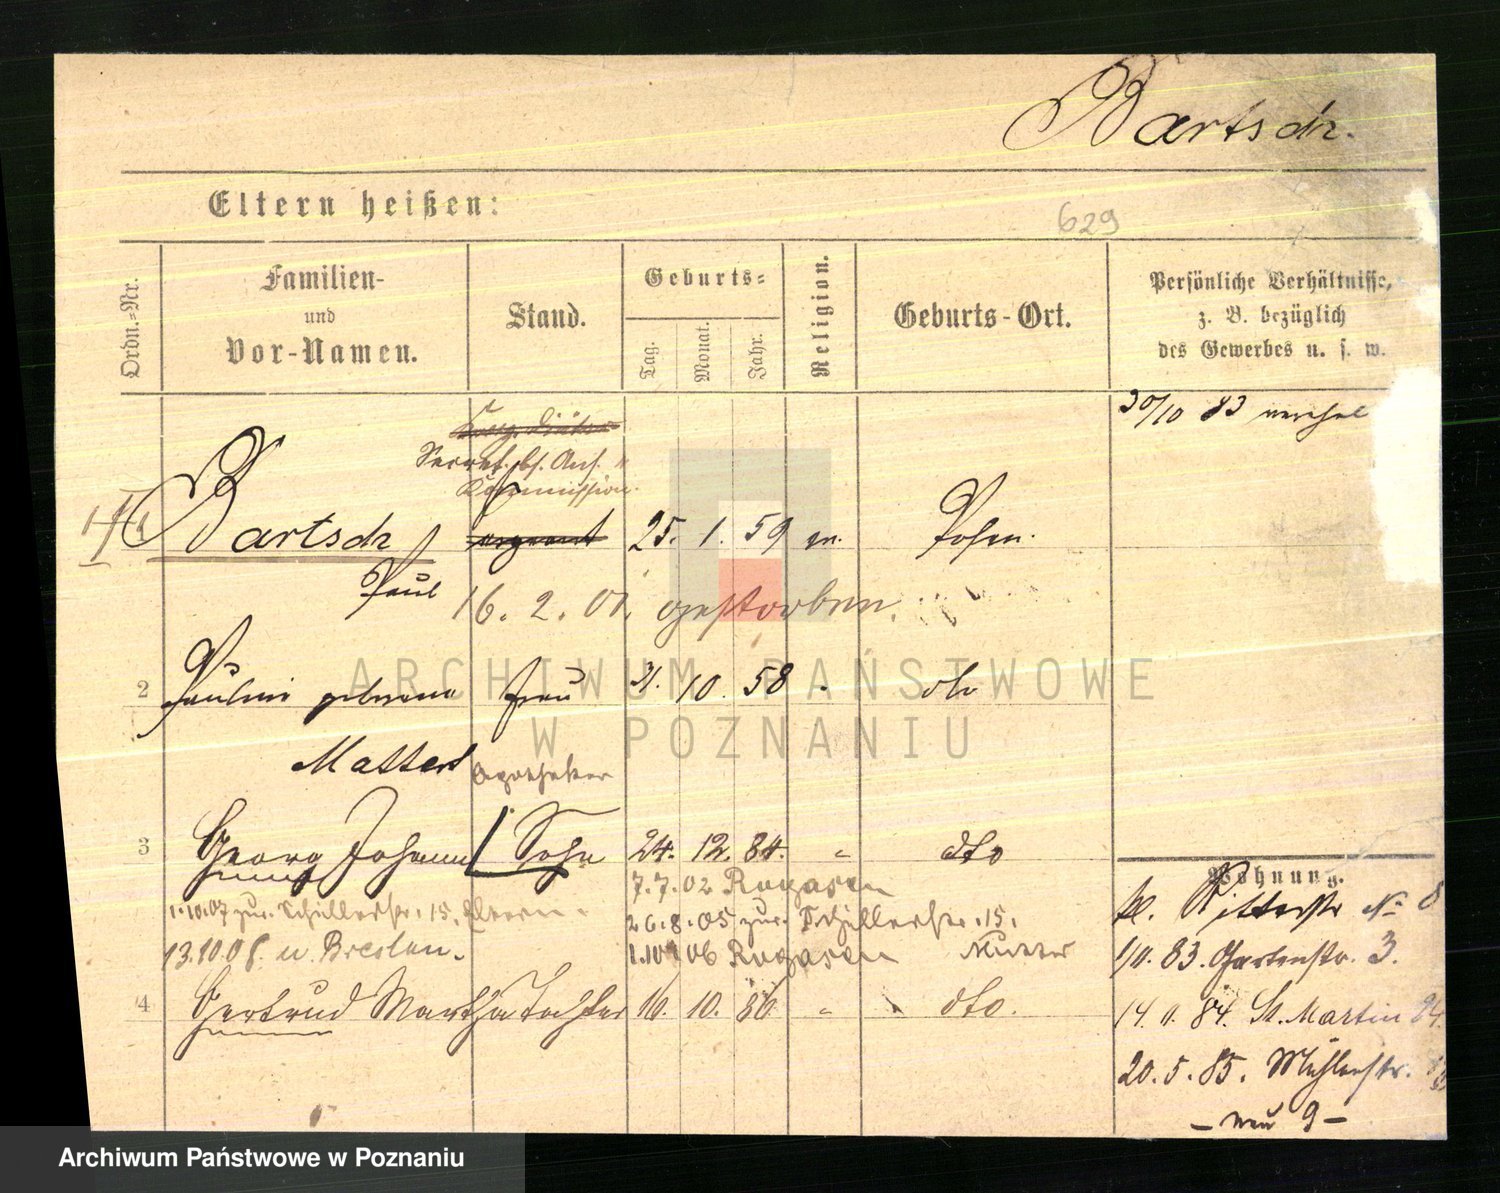 Bartsch.
Eltern heißen:
629
Ordn.-Nr.
Familien-
und
Vor-Namen.
Stand.
Geburts-
Tag.
Monat.
Jahr.
Religion.
Geburts-Ort.
Persönliche Verhältnisse,
z. B. bezüglich
des Gewerbes u. s. w.
30/10 83
Secret. bf. Ans.
Kommission.
Bartsch 25. 1. 59 Posen.
Paul
16. 2. 01. gestorben.
2 Pauline geborene Frau 31. 10. 58 dto
Mattert
Apotheker
3 Georg Johann Sohn 24. 12. 84. " dto
7. 7. 02 Rogasen
1.10.07 zur. Schillerstr. 15. Eltern.
26.8.05 zur. Schillerstr. 15.
Mutter
13.10.08. n. Breslau.
1.10.06 Rogasen
4 Gertrud Martha Tochter 16. 10. 86 " dto.
Wohnung.
kl. Ritterstr No 8
1/11. 83. Gartenstr. 3.
14. 11. 84. St. Martin 24.
20. 5. 85. Mühlenstr.
- neu 9 -
ARCHIWUM PAŃSTWOWE
W POZNANIU
Archiwum Państwowe w Poznaniu